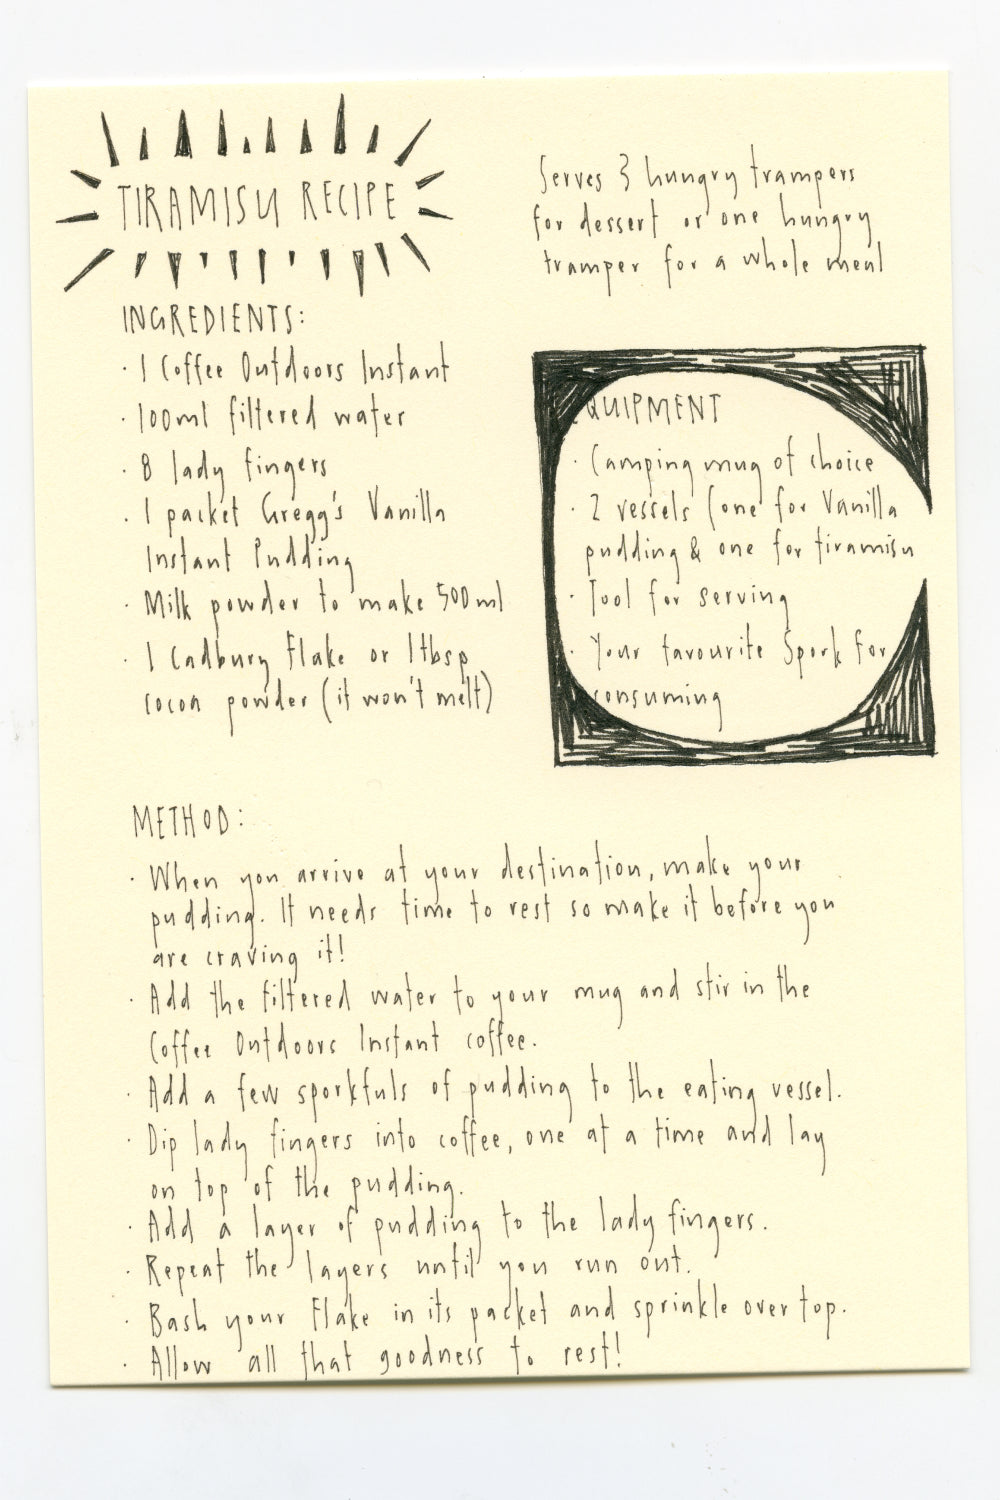 TIRAMISU RECIPE
Serves 3 hungry trampers
for dessert or one hungry
tramper for a whole meal
INGREDIENTS:
· 1 Coffee Outdoors Instant
· 100ml filtered water
· 8 lady fingers
· 1 packet Gregg's Vanilla
Instant Pudding
· Milk powder to make 500ml
· 1 Cadbury Flake or 1tbsp
cocoa powder (it won't melt)
EQUIPMENT
· Camping mug of choice
· 2 vessels (one for Vanilla
pudding & one for tiramisu
· Tool for serving
· Your favourite Spork for
consuming
METHOD:
· When you arrive at your destination, make your
pudding. It needs time to rest so make it before you
are craving it!
· Add the filtered water to your mug and stir in the
Coffee Outdoors Instant coffee.
· Add a few sporkfuls of pudding to the eating vessel.
· Dip lady fingers into coffee, one at a time and lay
on top of the pudding.
· Add a layer of pudding to the lady fingers.
· Repeat the layers until you run out.
· Bash your Flake in its packet and sprinkle over top.
· Allow all that goodness to rest!